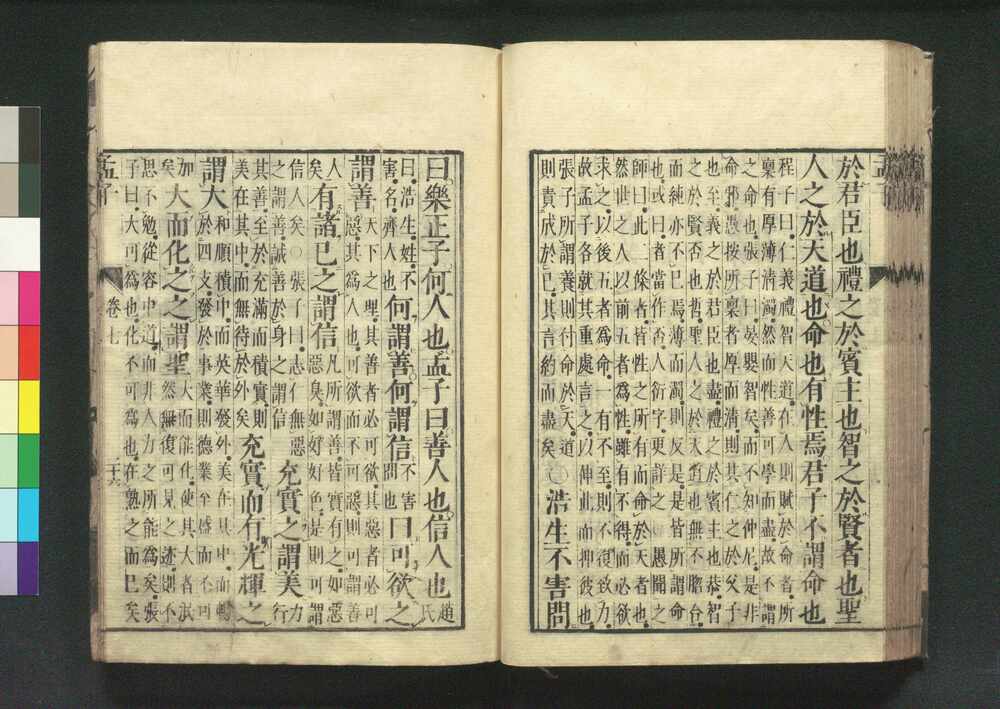 於君臣也禮之於賓主也智之於賢者也聖
人之於天道也命也有性焉君子不謂命也
程子曰仁義禮智天道在人則賦於命者所
稟有厚薄清濁然而性善可學而盡故不謂
之命也張子曰晏嬰智矣而不知仲尼是非
命邪愚按所稟者厚而清則其仁之於父子
也至義之於君臣也盡禮之於賓主也恭智
之於賢否也哲聖人之於天道也無不脗合
而純亦不已焉薄而濁則反是是皆所謂命
也或曰者當作否人衍字更詳之○愚聞之
師曰此二條者皆性之所有而命於天者也
然世之人以前五者為性雖有不得而必欲
求之以後五者為命一有不至則不復致力
故孟子各就其重處言之以伸此而抑彼也
張子所謂養則付命於天道
則責成於己其言約而盡矣
○浩生不害問
曰樂正子何人也孟子曰善人也信人也
趙氏
曰浩生姓不
害名齊人也
何謂善何謂信
不害
問也
曰可欲之
謂善
天下之理其善者必可欲其惡者必可
惡其為人也可欲而不可惡則可謂善
人
矣
有諸己之謂信
凡所謂善皆實有之如惡
惡臭如好好色是則可謂
信人矣○張子曰志仁無惡
之謂善誠善於身之謂信
充實之謂美
力
行
其善至於充滿而積實則
美在其中而無待於外矣
充實而有光輝之
謂大
和順積中而英華發外美在其中而暢
於四支發於事業則德業至盛而不可
加
矣
大而化之之謂聖
大而能化使其大者泯
然無復可見之迹則不
思不勉從容中道而非人力之所能為矣張
子曰大可為也化不可為也在熟之而已矣
孟子
卷七
二十六